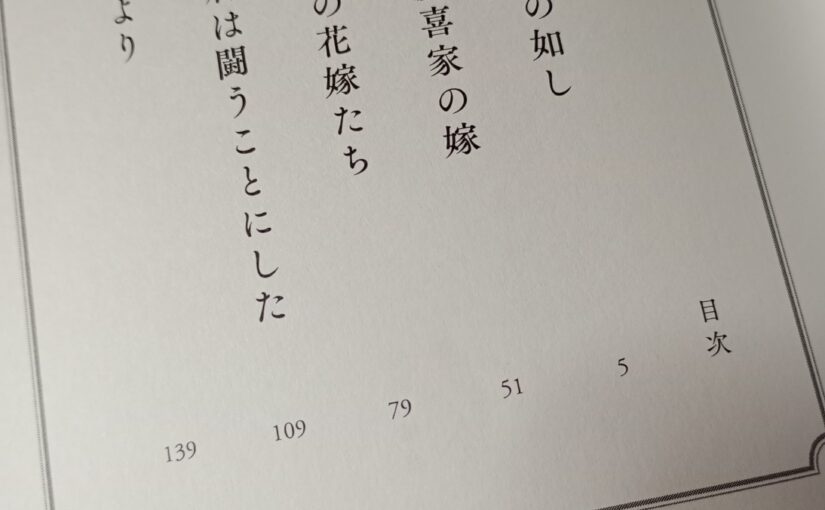 目次
の如し
5
喜家の嫁
51
の花嫁たち
79
は闘うことにした
109
より
139